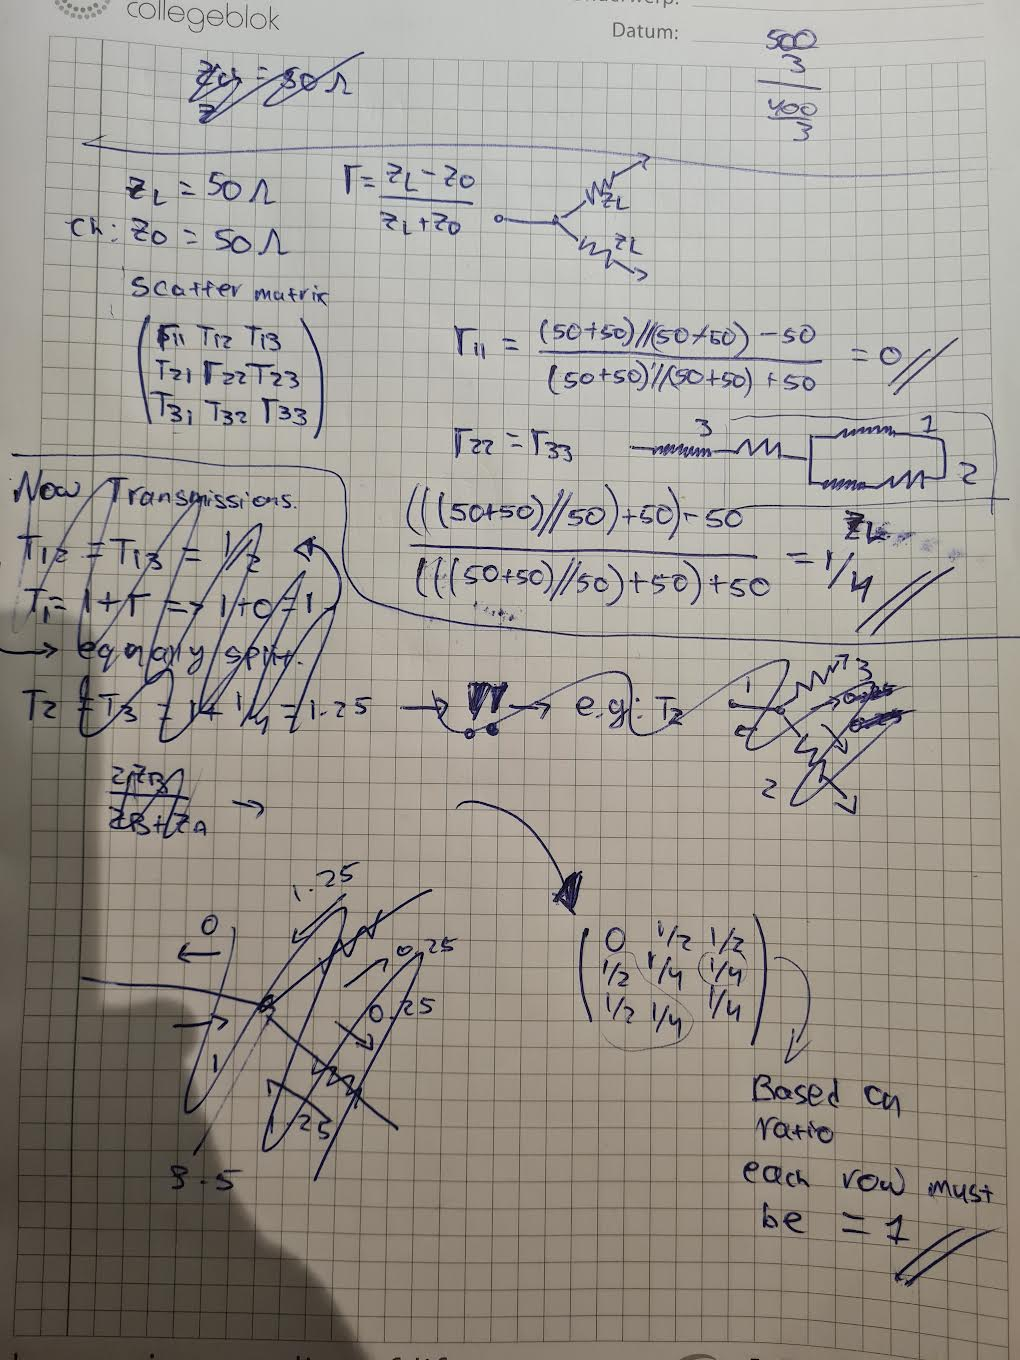 collegeblok
Datum:
500
3
400
3
= 50 Ω
Z_L = 50 Ω
Γ = Z_L - Z0
Z_L + Z0
Z_L
Z_L
Ch: Z0 = 50 Ω
Scatter matrix
Γ11 T12 T13
T21 Γ22 T23
T31 T32 Γ33
Γ11 = (50+50)//(50+50) - 50
(50+50)//(50+50) + 50
= 0
Γ22 = Γ33
3
1
2
(((50+50)//50)+50)-50
(((50+50)//50)+50)+50
= 1/4
ZL
Now Transmissions.
T12 = T13 = 1/2
T1 = 1+Γ → 1+0 = 1
→ equally split.
T2 = T3 = 1 + 1/4 = 1.25 → !! → e.g: T2
1
3
0.25
0.25
2
2ZB
ZB+ZA
→
1.25
0
0.25
0.25
1
1.25
3.5
0 1/2 1/2
1/2 1/4 1/4
1/2 1/4 1/4
Based on
ratio
each row must
be = 1